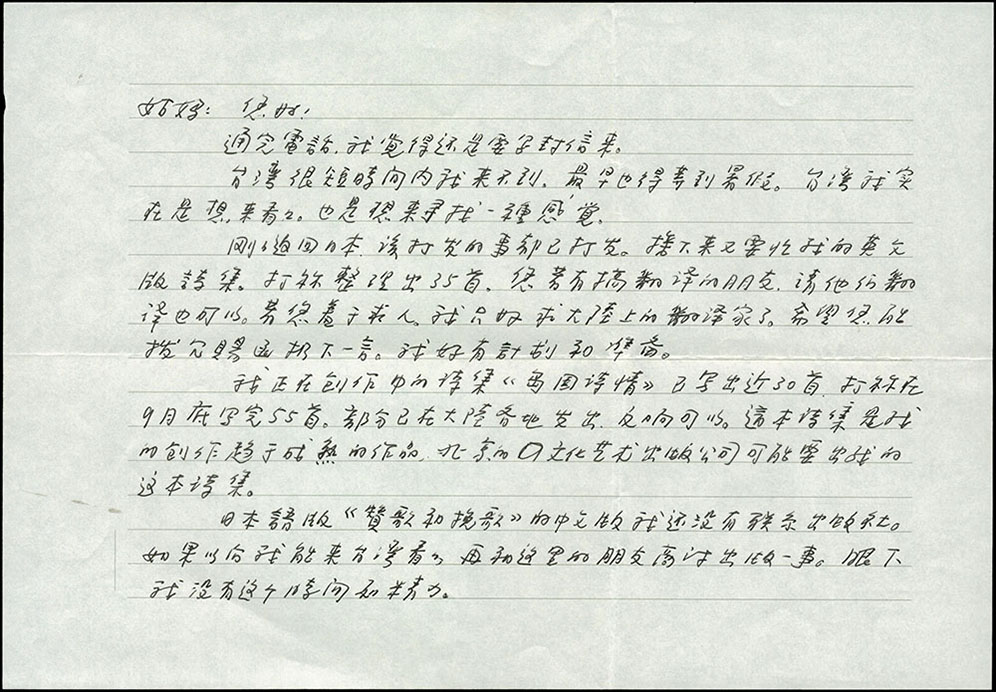 妈妈：您好！
通完電話，我覚得还是要写封信来。
台湾很短時间内我来不到，最早也得等到暑假。台湾我实
在是想来看々。也是想来寻找一種感覚。
刚々返回日本，该打发的事都已打发。接下来又要忙我的英文
版詩集。打祘整理出35首，您若有搞翻译的朋友，请他们翻
译也可以。若您羞于求人，我只好求大陸上的翻译家了。希望您能
拨冗賜函抑下一言。我好有計划和準备。
我正在创作中的诗集《 国诗情》已写出近30首，打祘在
9月底写完55首。部分已在大陸各地发出，反响可以。這本诗集是我
的创作趋于成熟的作品，北京的 文化艺术出版公司可能要出我的
这本诗集。
日本語版《贊歌和挽歌》的中文版我还没有联系出版社。
如果以后我能来台湾看々，再和这里的朋友商讨出版一事。眼下
我没有这个時间和精力。